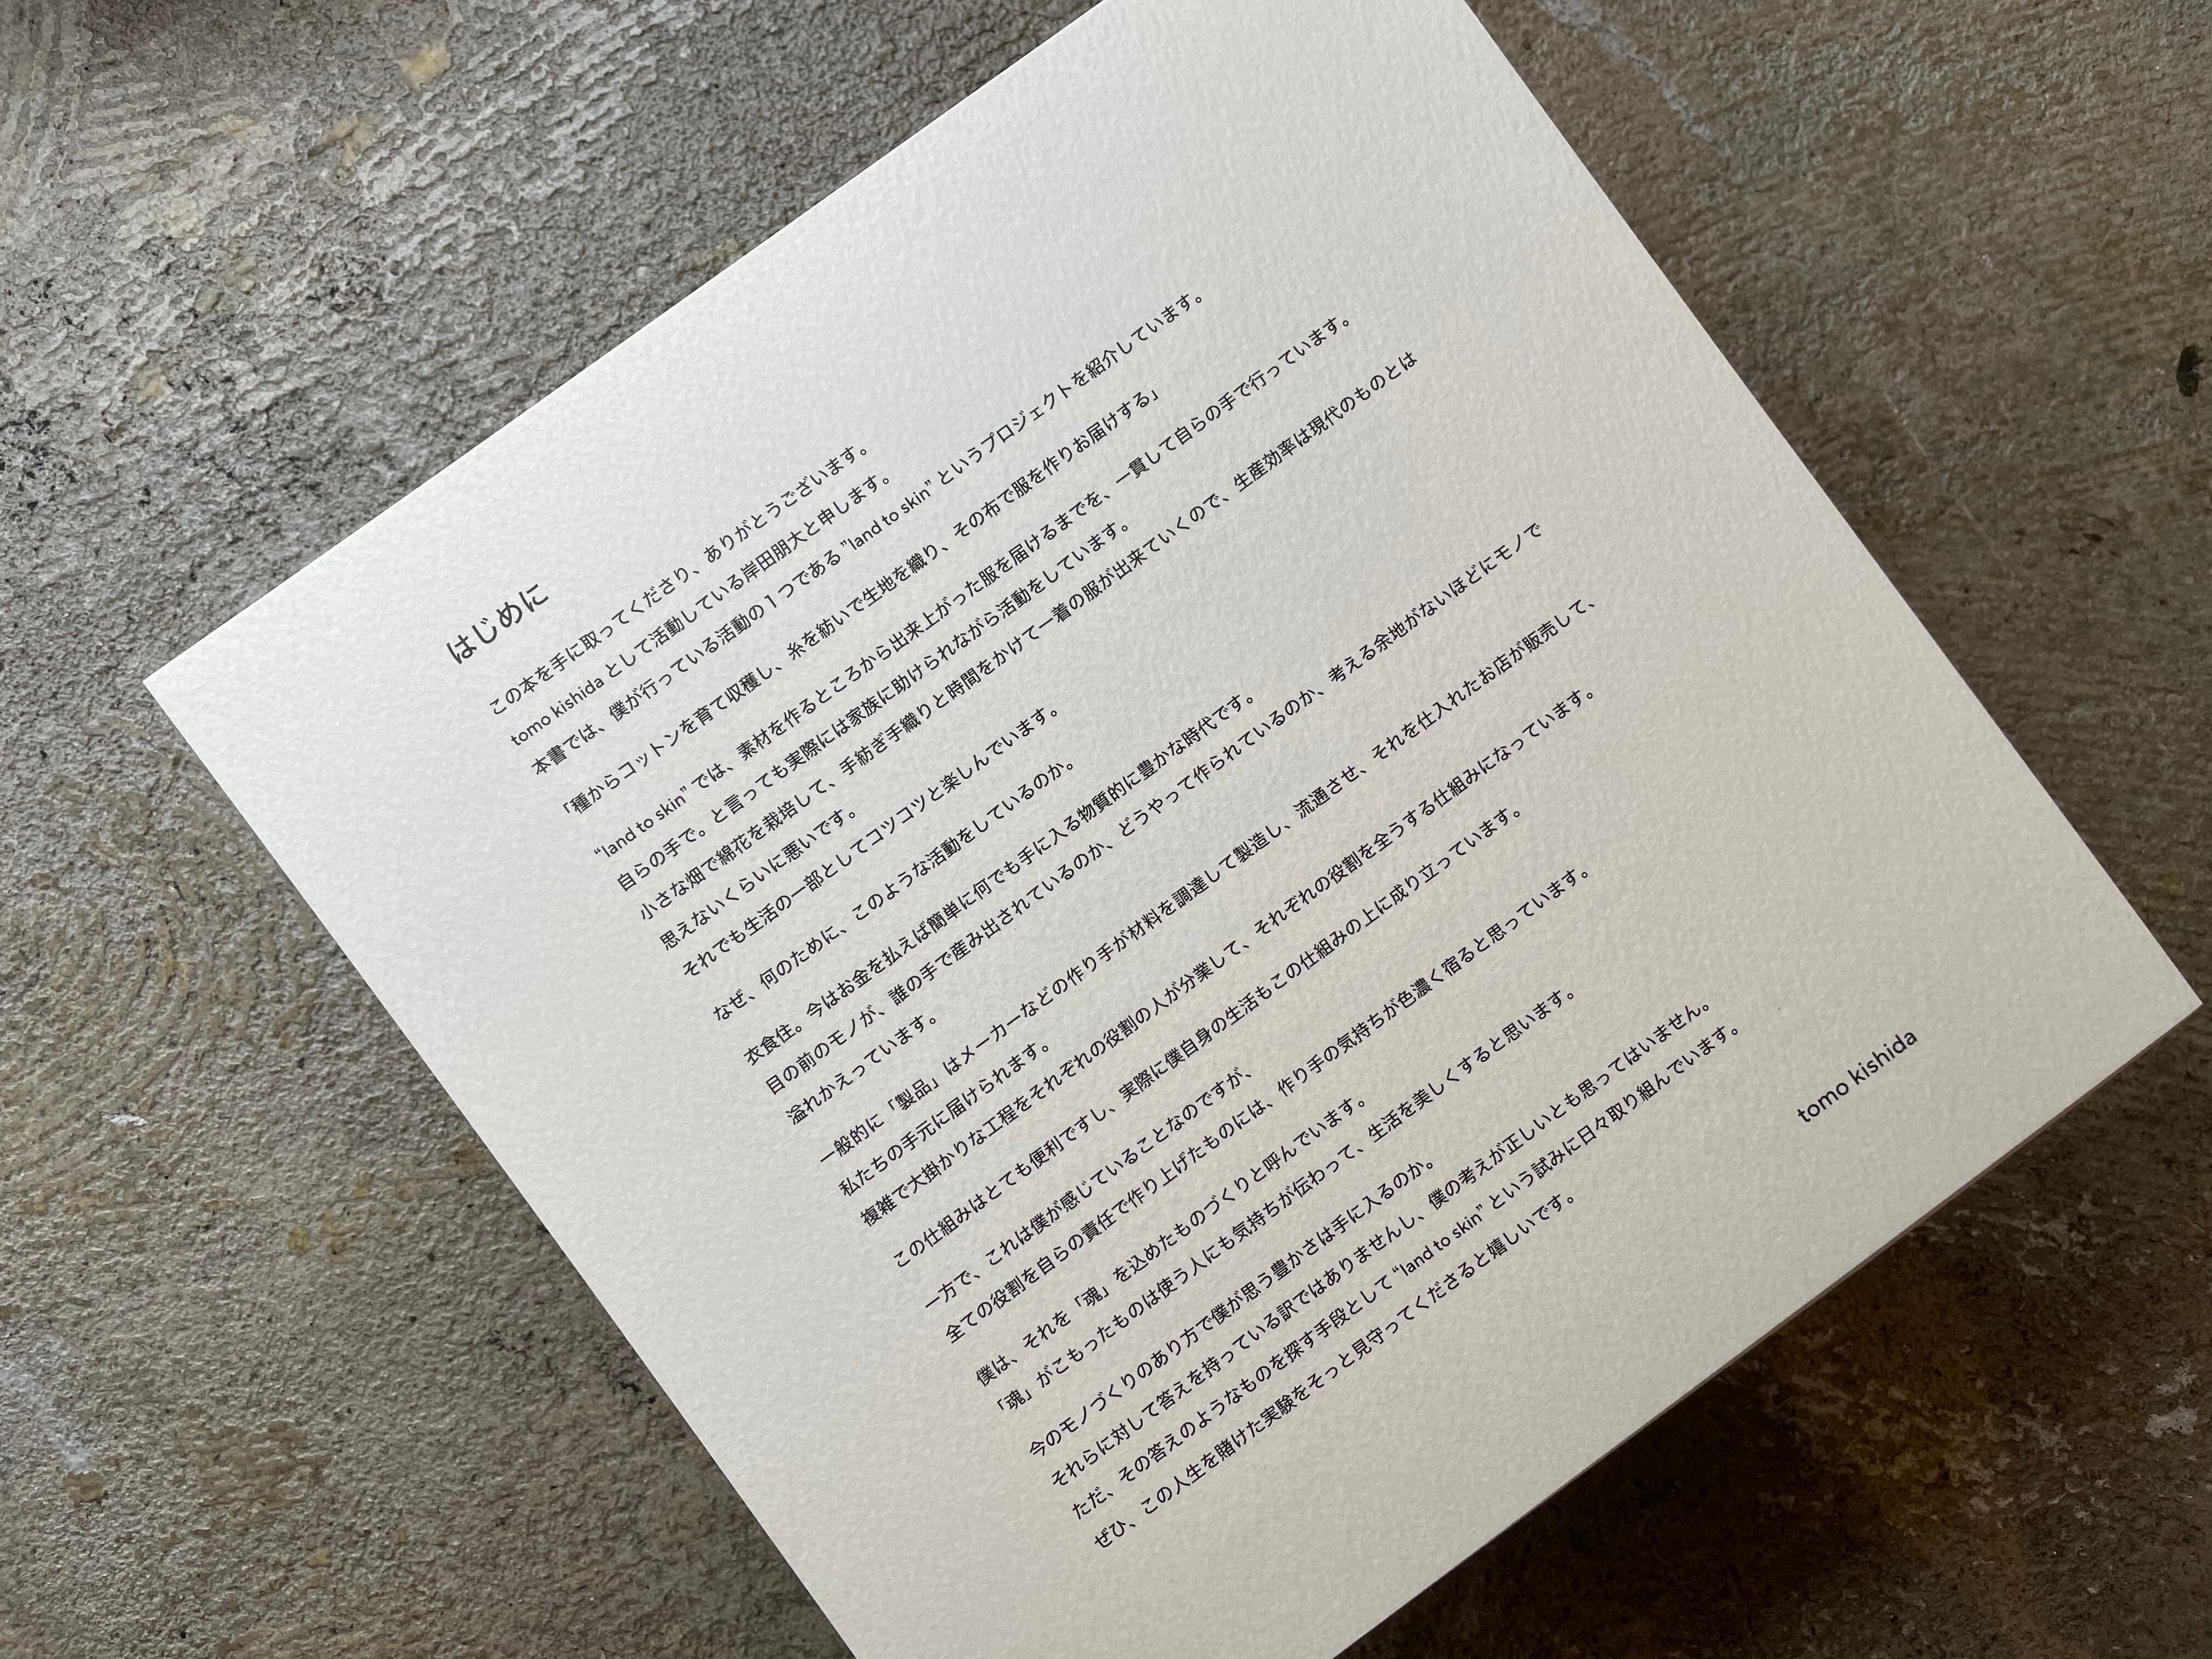 はじめに
この本を手に取ってくださり、ありがとうございます。
tomo kishida として活動している岸田朋大と申します。
本書では、僕が行っている活動の1つである ”land to skin” というプロジェクトを紹介しています。
「種からコットンを育て収穫し、糸を紡いで生地を織り、その布で服を作りお届けする」
“land to skin” では、素材を作るところから出来上がった服を届けるまでを、一貫して自らの手で行っています。
自らの手で。と言っても実際には家族に助けられながら活動をしています。
小さな畑で綿花を栽培して、手紡ぎ手織りと時間をかけて一着の服が出来ていくので、生産効率は現代のものとは
思えないくらいに悪いです。
それでも生活の一部としてコツコツと楽しんでいます。
なぜ、何のために、このような活動をしているのか。
衣食住。今はお金を払えば簡単に何でも手に入る物質的に豊かな時代です。
目の前のモノが、誰の手で産み出されているのか、どうやって作られているのか、考える余地がないほどにモノで
溢れかえっています。
一般的に「製品」はメーカーなどの作り手が材料を調達して製造し、流通させ、それを仕入れたお店が販売して、
私たちの手元に届けられます。
複雑で大掛かりな工程をそれぞれの役割の人が分業して、それぞれの役割を全うする仕組みになっています。
この仕組みはとても便利ですし、実際に僕自身の生活もこの仕組みの上に成り立っています。
一方で、これは僕が感じていることなのですが、
全ての役割を自らの責任で作り上げたものには、作り手の気持ちが色濃く宿ると思っています。
僕は、それを「魂」を込めたものづくりと呼んでいます。
「魂」がこもったものは使う人にも気持ちが伝わって、生活を美しくすると思います。
今のモノづくりのあり方で僕が思う豊かさは手に入るのか。
それらに対して答えを持っている訳ではありませんし、僕の考えが正しいとも思ってはいません。
ただ、その答えのようなものを探す手段として “land to skin” という試みに日々取り組んでいます。
ぜひ、この人生を賭けた実験をそっと見守ってくださると嬉しいです。
tomo kishida